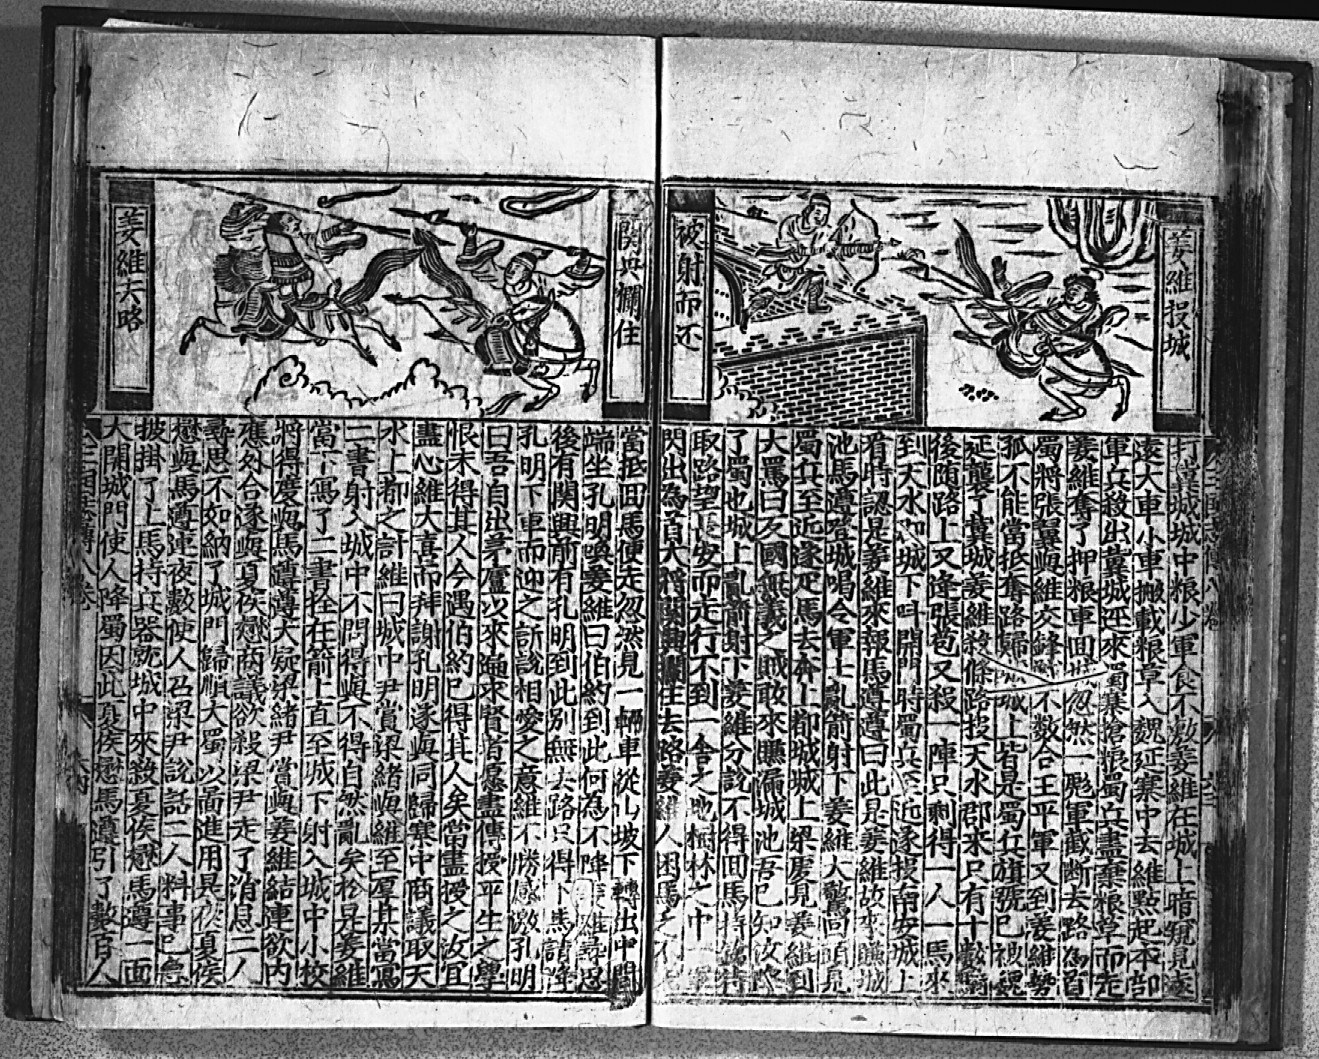 姜維投城
被射而还
打冀城城中粮少軍食不敷姜維在城上暗窺見蜀
遠大車小車搬載粮草入魏延寨中去維點起本部
軍兵殺出冀城逕來蜀寨搶粮蜀兵盡棄粮草而走
姜維奪了押粮車回城忽然一彪軍截断去路為首
蜀將張翼與維交鋒不数合王平軍又到姜維勢
孤不能當抵奪路歸城城上皆是蜀兵旗號已被魏
延襲了冀城姜維殺條路投天水郡來只有十數騎
後随路上又逢張苞又殺一陣只剩得一人一馬來
到天水城下叫開門時蜀兵至近遂投南安城上
看時認是姜維來報馬遵遵曰此是姜維故來賺城
池馬遵登城喝令軍士亂箭射下姜維大驚回頭見
蜀兵至近遂疋馬去奔上郡城城上梁慶見姜維到
大罵曰反國無議之賊敢來賺漏城池吾已知汝降
了蜀也城上亂箭射下姜維分說不得回馬持鎗待
取路望長安而走行不到一舍之地樹林之中
閃出為首大將関興攔住去路姜維人困馬乏不
関興攔住
姜維夫略
當抵回馬便走忽然見一輛車從山坡下轉出中間
端坐孔明喚姜維曰伯約到此何為不降姜維尋思
後有関興前有孔明到此別無去路只得下馬請降
孔明下車而迎之訴說相愛之意維不勝感激孔明
曰吾自出茅廬以來遍求賢者愿盡傳授平生之學
恨未得其人今遇伯約已得其人矣當盡授之汝宜
盡心維大喜而拜謝孔明遂與同歸寨中商議取天
水上郡之計維曰城中尹賞梁緒與維至厚某當寫
二書射入城中不問得與不得自然亂矣於是姜維
當下寫了二書拴在箭上直至城下射入城中小校
將得慶與馬遵遵大疑梁緒尹賞與姜維結連欲内
應外合遂與夏侯楙商議欲殺梁尹走了消息二人
尋思不如納了城門歸順大蜀以畱進用是夜夏侯
楙與馬遵連夜數使人召梁尹說話二人料事已急
披掛了上馬持兵器就城中來殺夏侯楙馬遵一面
大開城門使人降蜀因此夏侯楙馬遵引了數百人